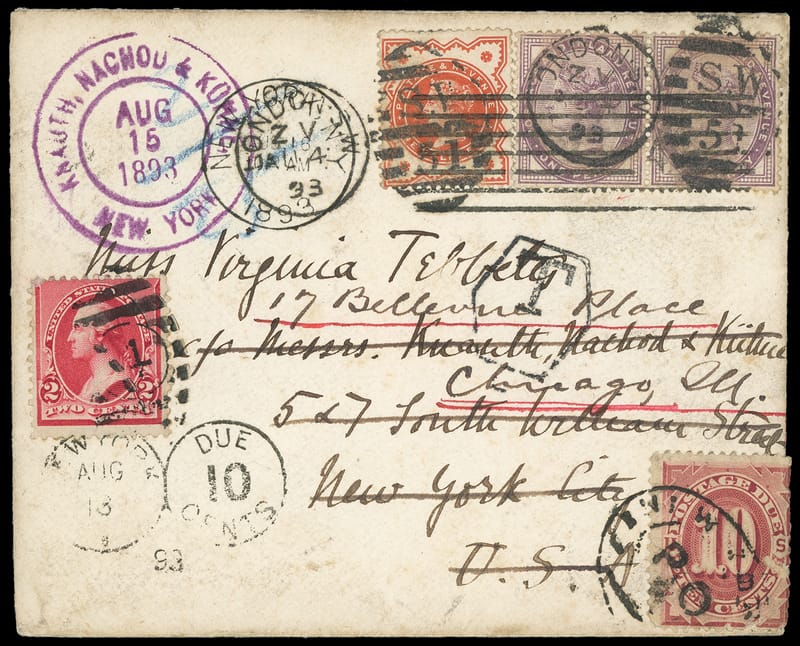 KNAUTH, NACHOD & KÜH
AUG
15
1893
NEW YORK
NEW YORK
1893
LONDON. N.W
Z V
AU 4
93
LONDON. N.W
Z V
93
S.W
5
Miss Virginia Tebbets
17 Bellevue Place
c/o Messrs. Knauth, Nachod & Kühne
Chicago, Ill.
5 & 7 South William Street
New York City
U.S.A
T
UNITED STATES
2 2
TWO CENTS
1
NEW YORK
AUG
13
93
DUE
10
CENTS
POSTAGE DUE
10
TEN CENTS
P.O